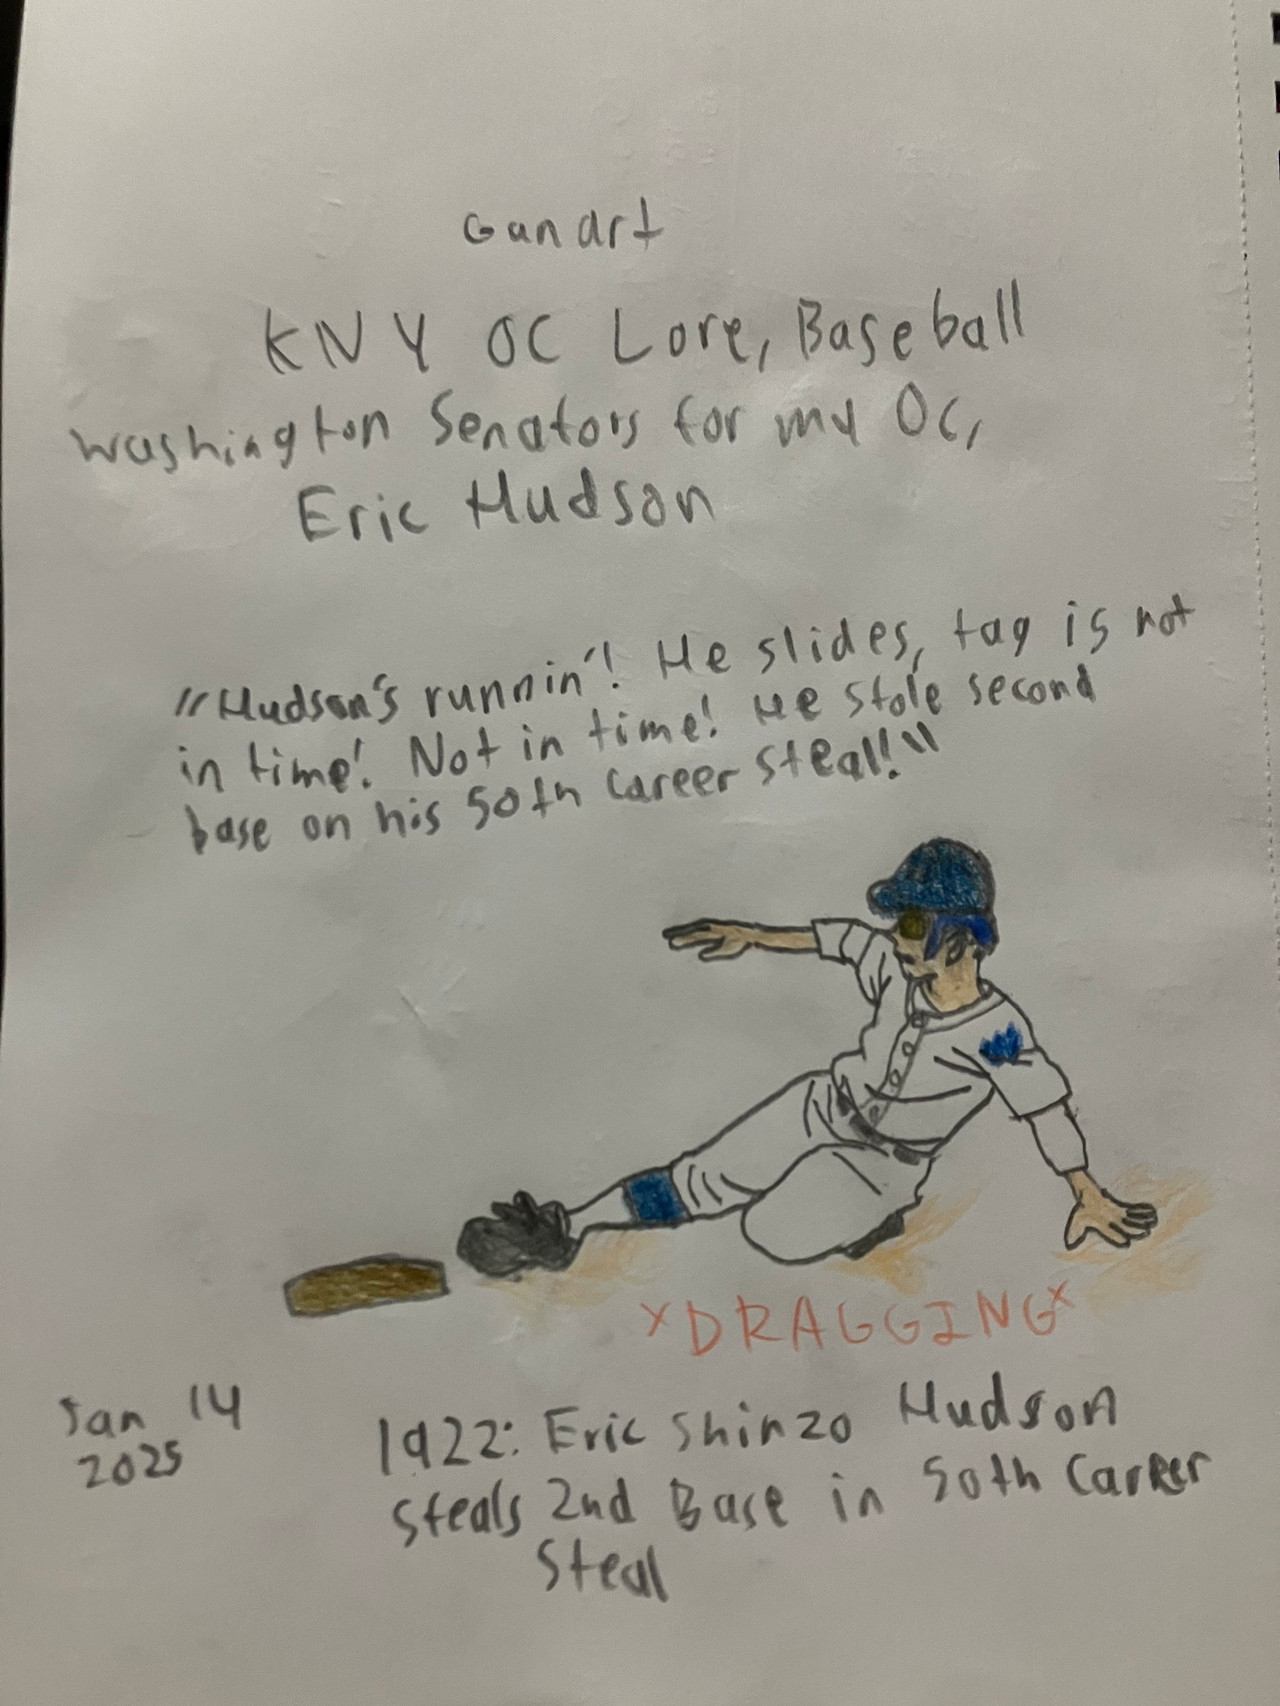 Gan art
KNY OC Lore, Baseball
Washington Senators for my OC,
Eric Hudson
"Hudson's runnin'! He slides, tag is not
in time! Not in time! He stole second
base on his 50th career steal!"
xDRAGGINGx
Jan 14
2025
1922: Eric Shinzo Hudson
Steals 2nd Base in 50th Career
Steal